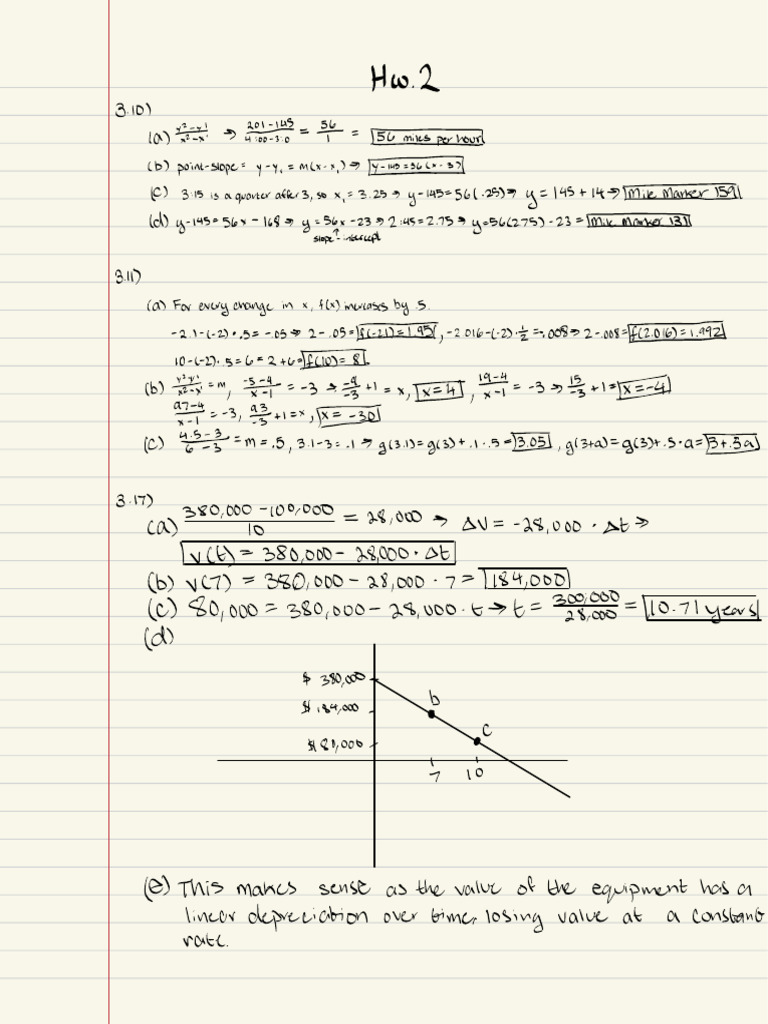 Hw. 2
3.10)
(a) y²-y¹/x²-x¹ → 201-145/4:00-3:0 = 56/1 = 56 miles per hour
(b) point-slope = y-y₁ = m(x-x₁) → y-145=56(x-3)
(c) 3:15 is a quarter after 3, so x₁ = 3.25 → y-145=56(.25) → y = 145 + 14 → Mile Marker 159
(d) y-145=56x-168 → y=56x-23 → 2:45=2.75 → y=56(2.75)-23 = Mile Marker 131
slope ↑ intercept
3.11)
(a) For every change in x, f(x) increases by .5.
-2.1-(-2)·.5=-.05 → 2-.05= f(-2.1)=1.95, -2.016-(-2)·1/2=-.008 → 2-.008= f(2.016)=1.992
10-(-2)·.5=6=2+6= f(10)=8
(b) y²-y¹/x²-x¹=m, -5-4/x-1 = -3 → -9/-3 +1 = x, x=4, 19-4/x-1 = -3 → 15/-3 +1= x=-4
97-4/x-1 = -3, 93/-3 +1=x, x=-30
(c) 4.5-3/6-3 = m = .5, 3.1-3=.1 → g(3.1)=g(3)+.1·.5= 3.05, g(3+a)=g(3)+.5·a= 3+.5a
3.17)
(a) 380,000-100,000/10 = 28,000 → ΔV = -28,000·Δt ⇒
v(t) = 380,000-28,000·Δt
(b) v(7) = 380,000-28,000·7= 184,000
(c) 80,000=380,000-28,000·t → t = 300,000/28,000 = 10.71 years
(d)
$ 380,000
b
$ 184,000
c
$ 80,000
7 10
(e) This makes sense as the value of the equipment has a
linear depreciation over time, losing value at a constant
rate.